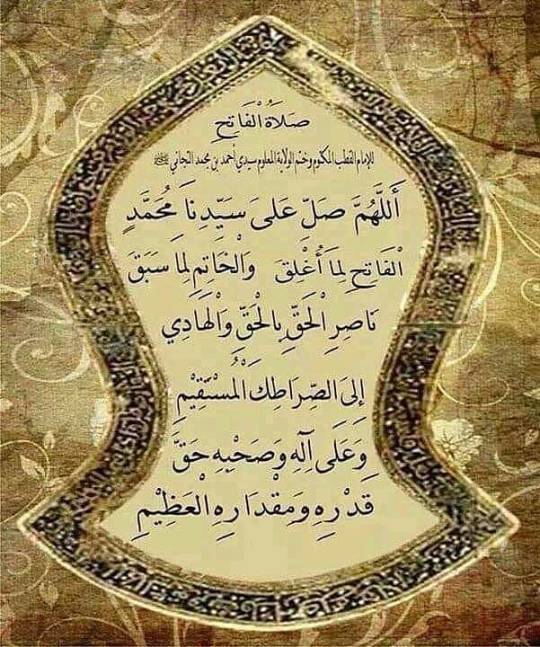 صَلَاةُ الْفَاتِحِ
للإمام القطب المكتوم وختم الولاية المعلوم سيدي أحمد بن محمد التجاني
أَللَّهُمَّ صَلِّ عَلَى سَيِّدِنَا مُحَمَّدٍ
الْفَاتِحِ لِمَا أُغْلِقَ وَالْخَاتِمِ لِمَا سَبَقَ
نَاصِرِ الْحَقِّ بِالْحَقِّ وَالْهَادِي
إِلَى الصِّرَاطِكَ الْمُسْتَقِيْمِ
وَعَلَى آلِهِ وَصَحْبِهِ حَقَّ
قَدْرِهِ وَمِقْدَارِهِ الْعَظِيْمِ